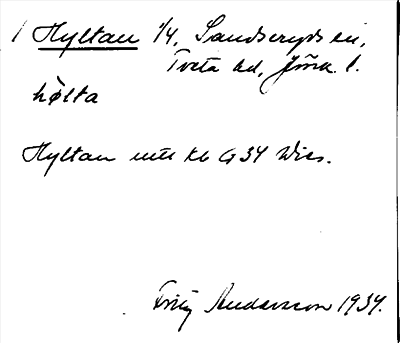 / Hyltan 1/4, Sandseryds sn,
Tveta hd, Jönk. l.
hỏ̀lta
Hyltan utt kb G 34 Wies.
Fritz Andersson 1934.